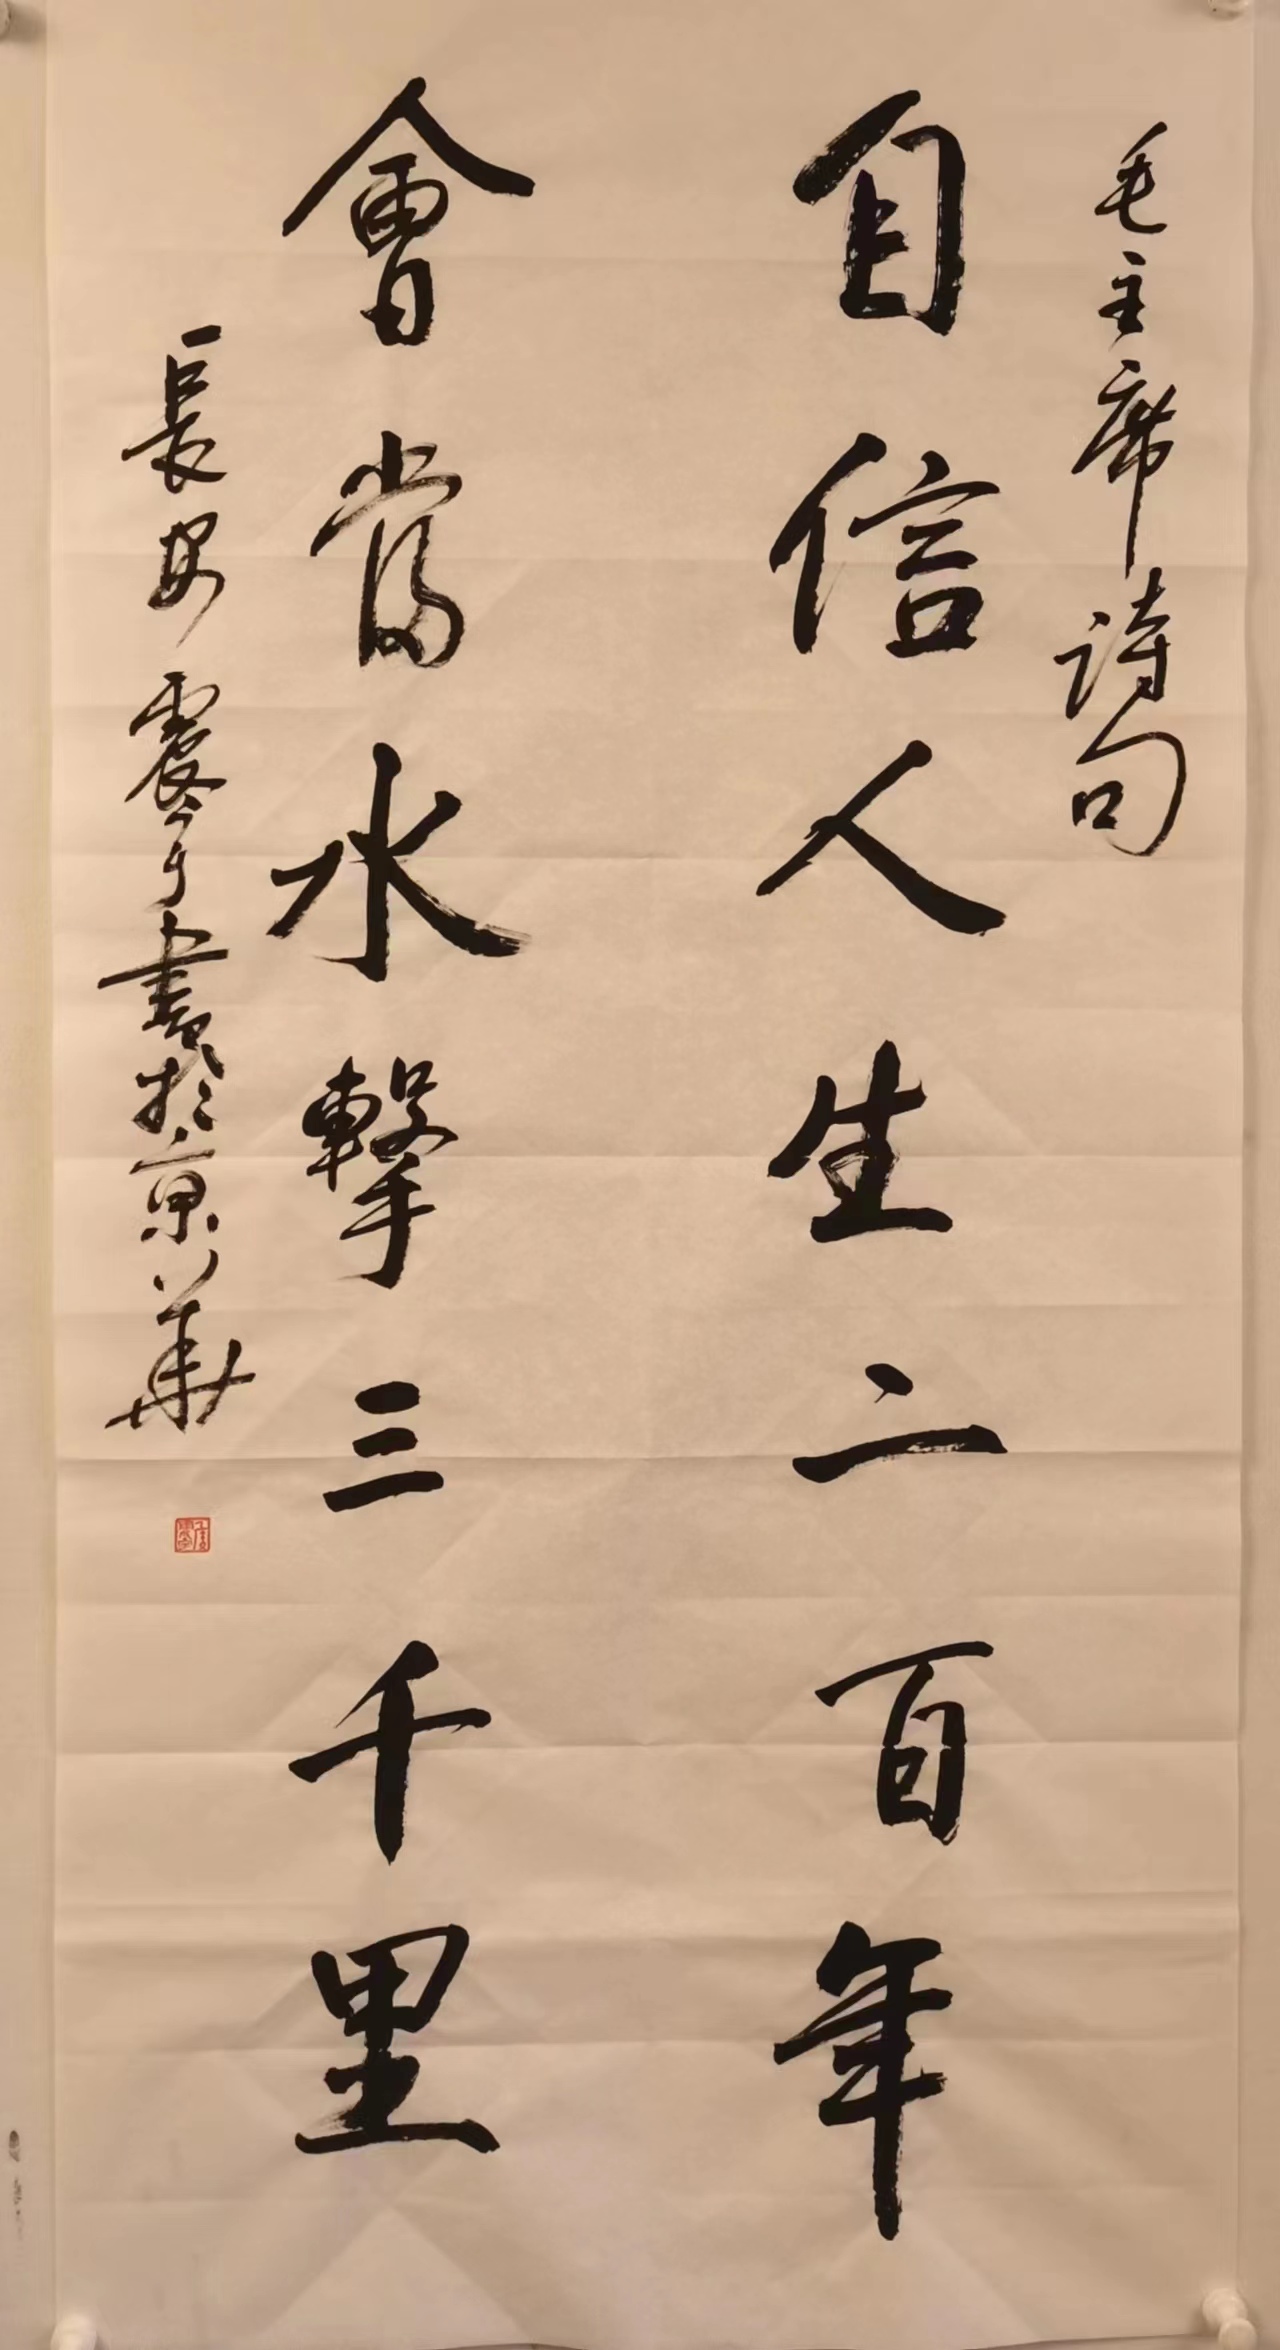 毛主席詩句
自信人生二百年
會當水擊三千里
長安震宇書於京華